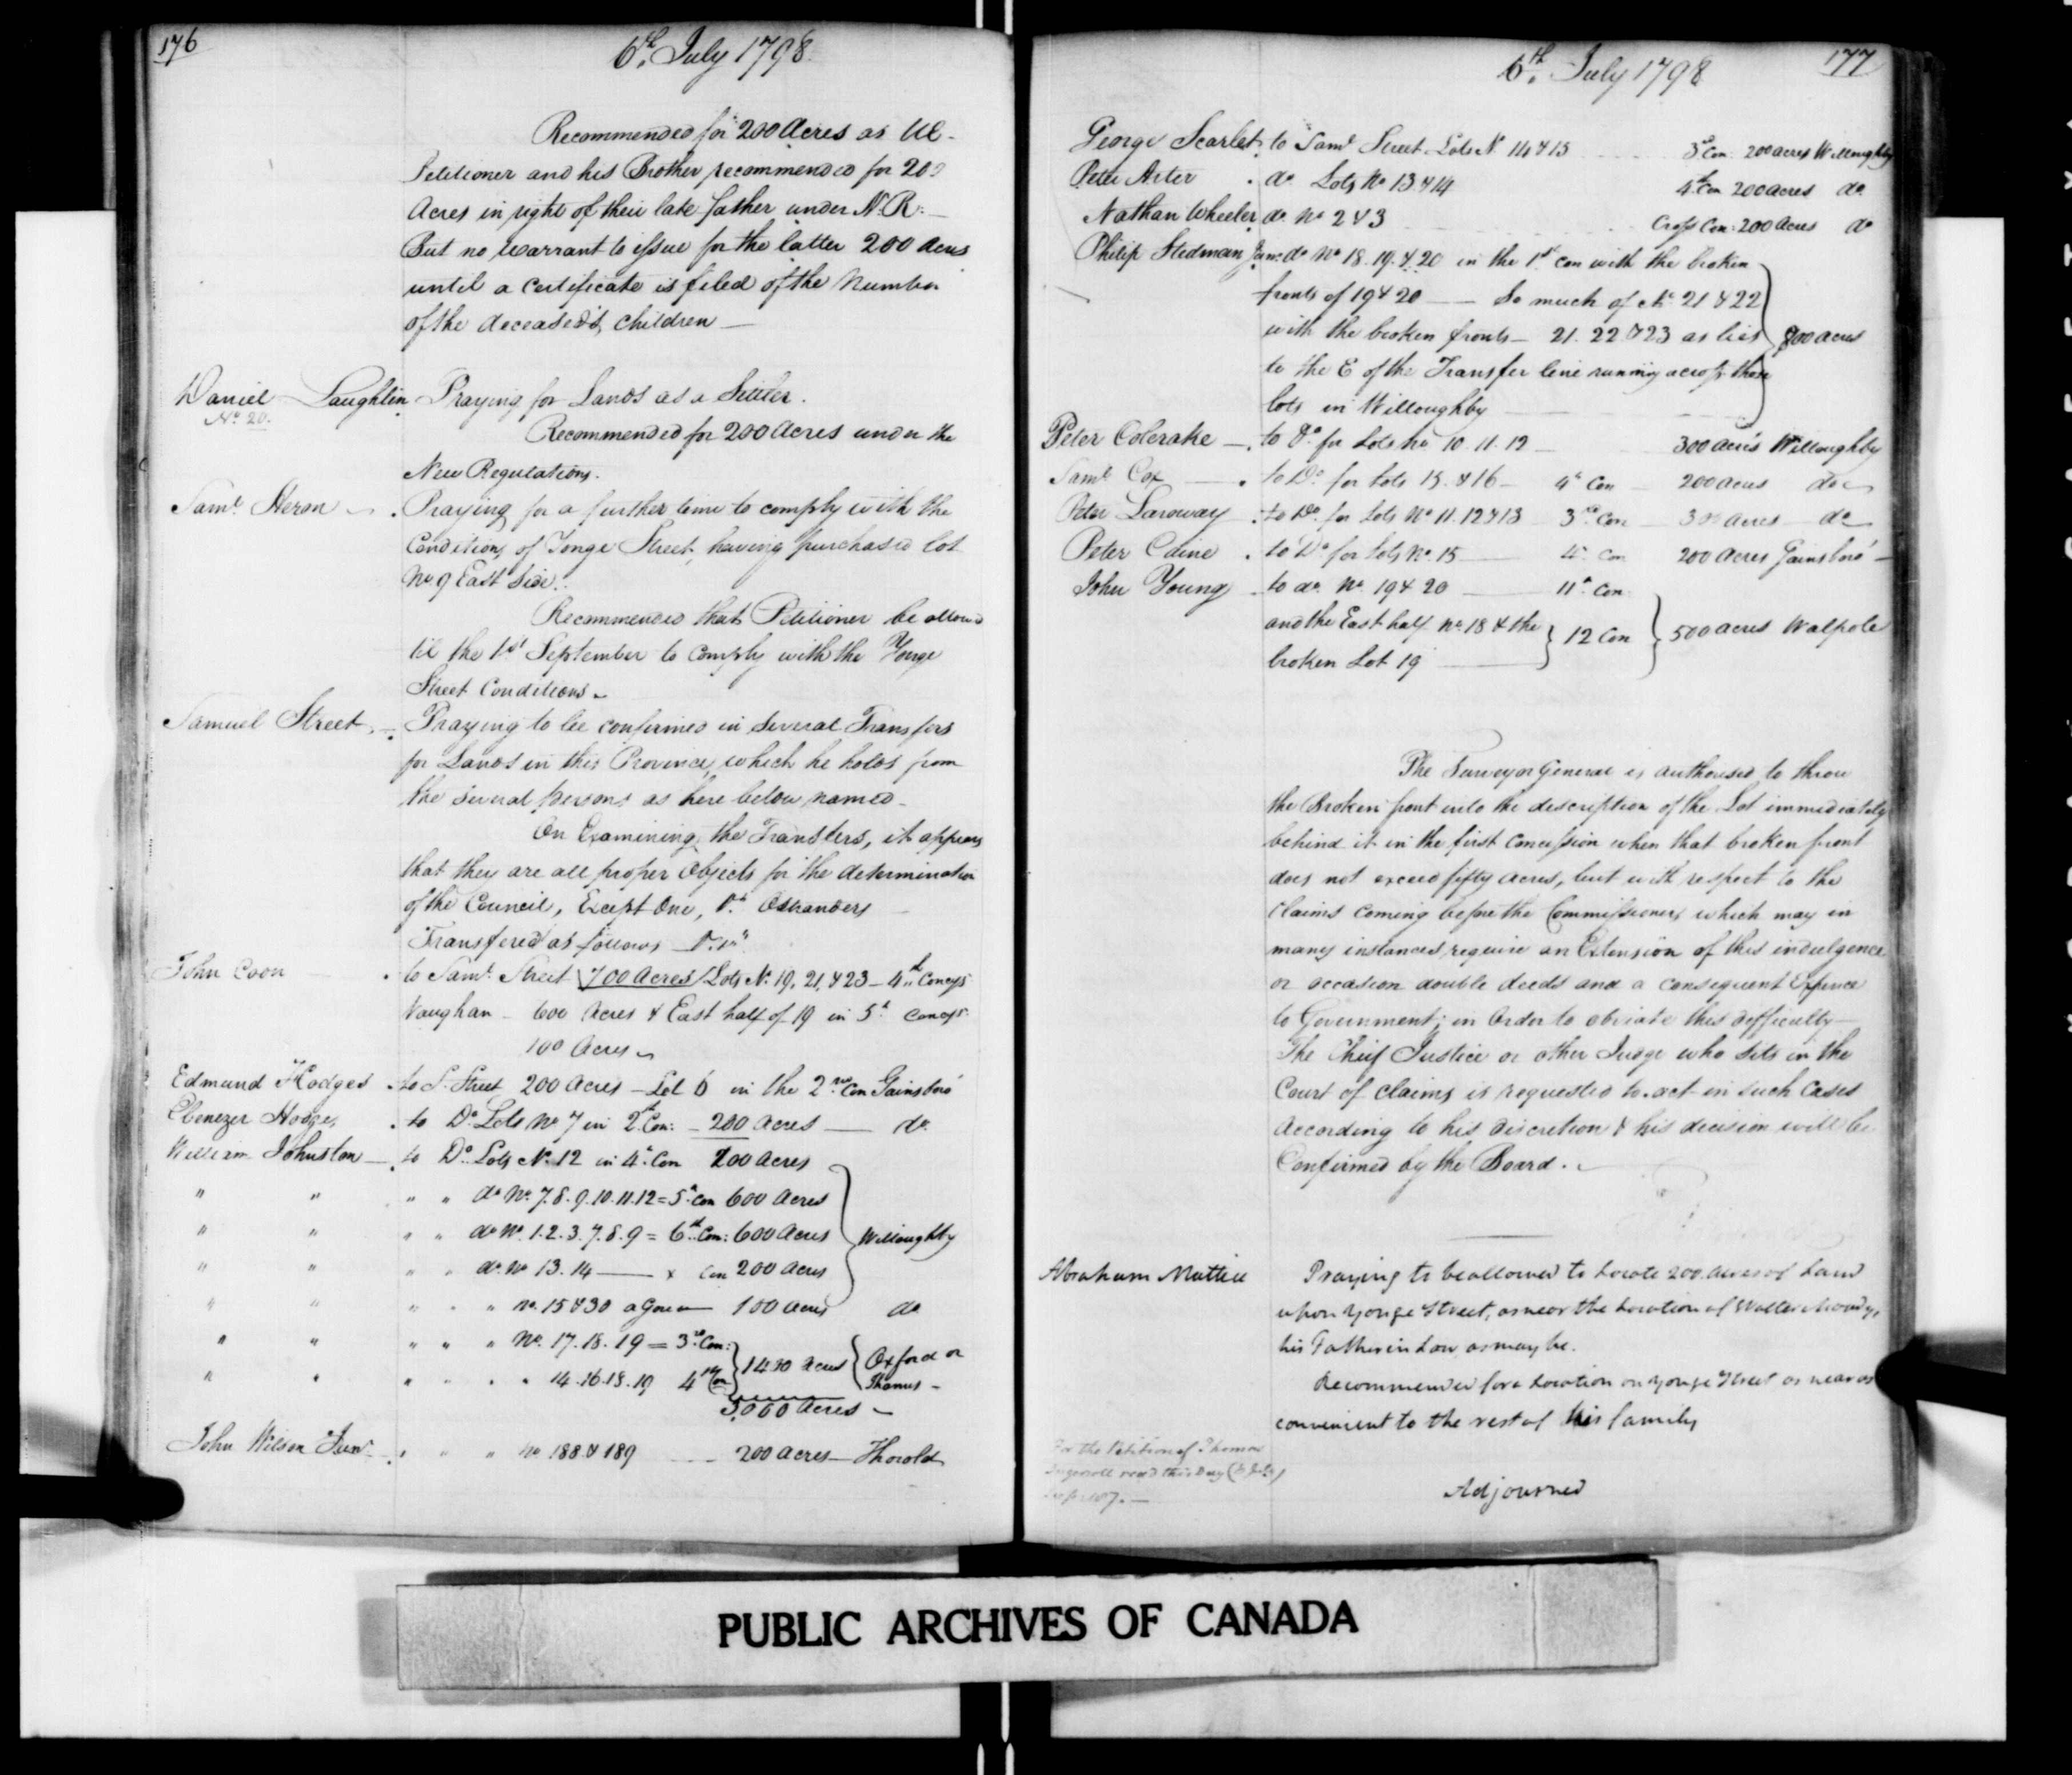 176
6th. July 1798.
Recommended for 200 Acres as UE -
Petitioner and his Brother recommended for 200
Acres in right of their late father under N. R. -
But no Warrant to issue for the latter 200 Acres
until a Certificate is filed of the Number
of the deceased's children -
Daniel Laughlin Praying for Lands as a Settler.
No. 20.
Recommended for 200 Acres under the
New Regulations.
Saml. Heron Praying for a further time to comply with the
Conditions of Yonge Street, having purchased lot
No. 9 East Side.
Recommended that Petitioner be allowed
til the 1st September to comply with the Yonge
Street Conditions
Samuel Street Praying to be confirmed in several Transfers
for Lands in this Province, which he holds from
the several persons as here below named -
On Examining the Transfers, it appears
that they are all proper Objects for the determination
of the Council, Except One,
Transfered as follows
John Coon to Saml. Street 700 Acres Lots No. 19, 21, & 23 - 4th Concess
Vaughan - 600 Acres & East half of 19 in 5th Concess
100 Acres
Edmund Hodges to S. Street 200 Acres - Lot 6 in the 2nd Con Gainsboro'
Ebenezer Hodges to Do. Lots No. 7 in 2d. Con: - 200 Acres - do.
William Johnston to Do. Lots No. 12 in 4th Con 200 Acres
" " " " do No. 7. 8. 9. 10. 11. 12 = 5th Con 600 Acres
" " " " do No. 1. 2. 3. 7. 8. 9 = 6th Con: 600 Acres Willoughby
" " " " do. No 13. 14 - x Con 200 Acres
" " " " " No. 15 & 30 a Gore - 100 Acres do
" " " " " No. 17. 18. 19 = 3rd Con:
" " " " " 14. 16. 18. 19 4th Con 1400 Acres Oxford on Thames -
3,000 Acres -
John Wilson Junr. " " " No 188 & 189 200 Acres - Thorold
177
6th. July 1798
George Scarlet to Saml Street Lots No. 14 & 15 3d Con 200 acres Willoughby
Peter Arter do Lots No 13 & 14 4th Con 200 acres do.
Nathan Wheeler do. No 2 & 3 Cross Con: 200 Acres do
Philip Stedman Junr. do No 18. 19. & 20 in the 1st Con with the broken
fronts of 19 & 20 - So much of No. 21 & 22
with the broken fronts - 21. 22 & 23 as lies 800 acres
to the E of the Transfer line running across those
lots in Willoughby
Peter Colerake to Do. for Lots No 10. 11. 12 300 acres Willoughby
Saml. Cox to Do. for Lots 15. & 16 - 4th Con 200 acres do
Peter Laroway to Do. for Lots No 11. 12 & 13 3rd Con 300 acres do
Peter Caine to Do for Lots No. 15 4th Con 200 Acres Gainsboro' -
John Young to do. No. 19 & 20 11th Con
and the East half No. 18 & the 12 Con 500 acres Walpole
broken Lot 19
The Surveyor General is authorised to throw
the Broken front into the description of the Lot immediately
behind it in the first Concession when that broken front
does not exceed fifty acres, but with respect to the
Claims coming before the Commissioners which may in
many instances require an Extension of this indulgence
or occasion double deeds and a consequent Expence
to Government; in Order to obviate this difficulty -
The Chief Justice or other Judge who sits in the
Court of Claims is requested to act in such Cases
According to his discretion & his decision will be
Confirmed by the Board.
Abraham Mattice Praying to be allowed to Locate 200 Acres of Land
upon Yonge Street, as near the Location of Walter Moody,
his Father in Law as may be.
Recommended for a Location on Yonge Street as near as
convenient to the rest of his family
For the Petition of Thomas
Ingersoll read this Day (6 July)
Adjourned
PUBLIC ARCHIVES OF CANADA